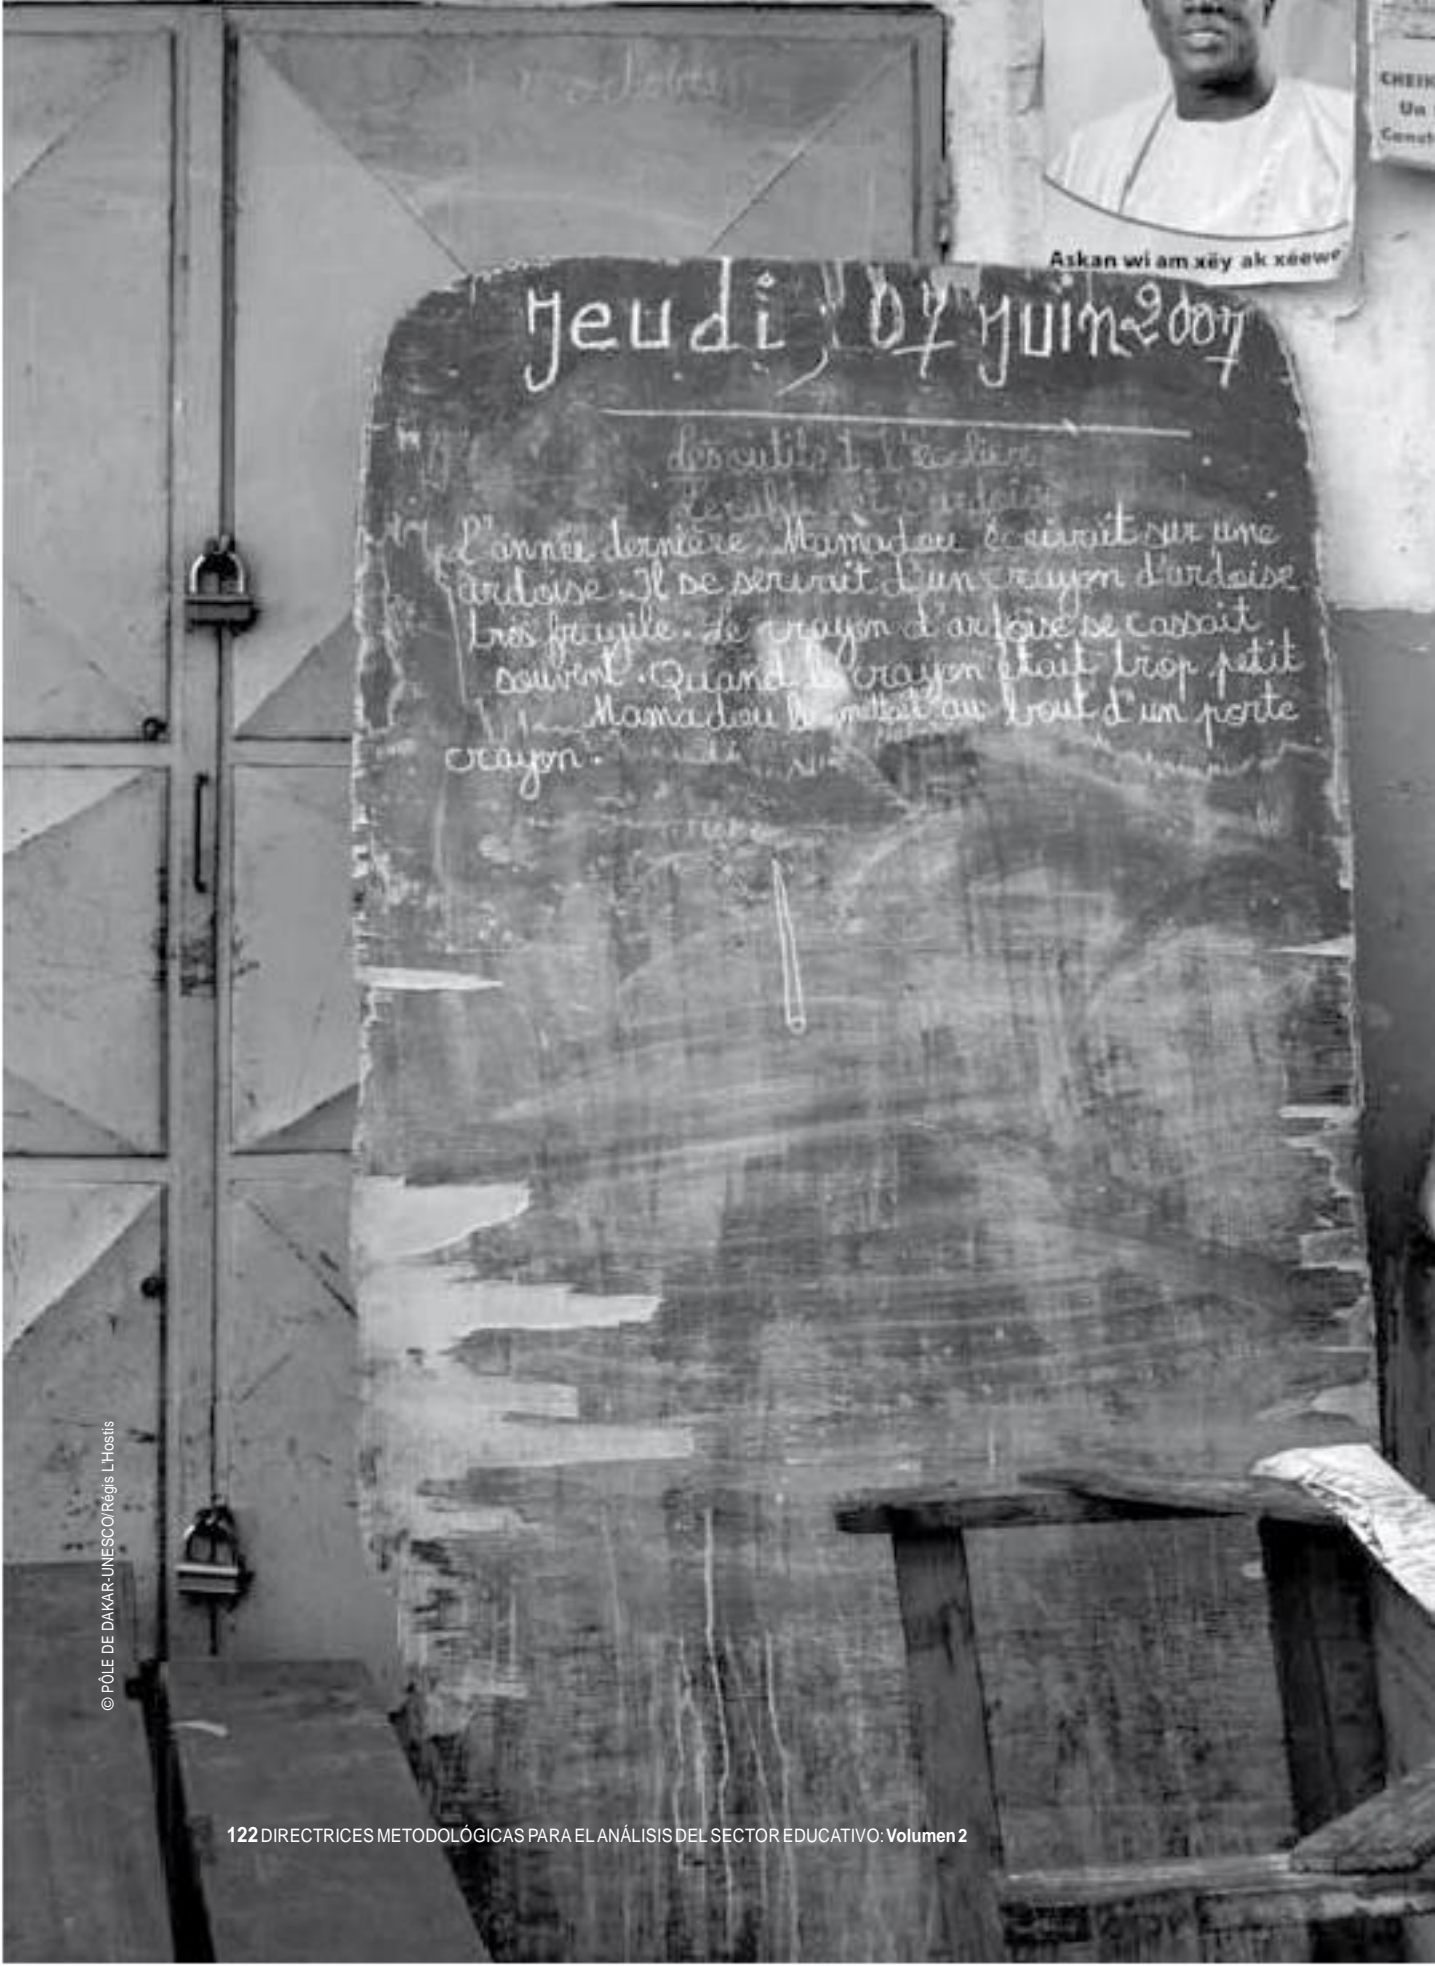 CHEIK
Un
Const
Askan wi am xëy ak xéewe
Jeudi, 07 Juin 2007
Les outils de l'écolier
L'année dernière, Mamadou écrivait sur une
ardoise. Il se servait d'un crayon d'ardoise
très fragile. Le crayon d'ardoise se cassait
souvent. Quand le crayon était trop petit
Mamadou le mettait au bout d'un porte
crayon.
© PÔLE DE DAKAR-UNESCO/Régis L'Hostis
122 DIRECTRICES METODOLÓGICAS PARA EL ANÁLISIS DEL SECTOR EDUCATIVO: Volumen 2